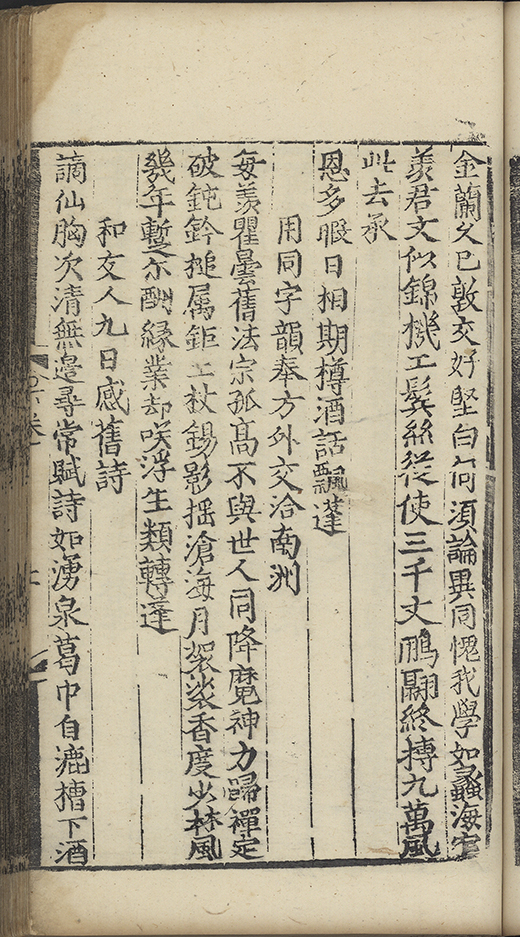 金蘭久已敦交好堅白何須論異同愧我學如蠡海窄
羨君文似錦機工鬂絲從使三千丈鵬翮終摶九萬風
此去承
恩多暇日相期樽酒話飄蓬
用同字韻奉方外交洽南洲
每羨瞿曇舊法宗孤髙不與世人同降魔神力歸禪定
破鈍鈐搥属鉅工杖錫影揺滄海月袈裟香度少林風
幾年蹔尓酬縁業却咲浮生類轉蓬
和友人九日感舊詩
謫仙胸次清無邉尋常賦詩如湧泉葛巾自漉槽下酒